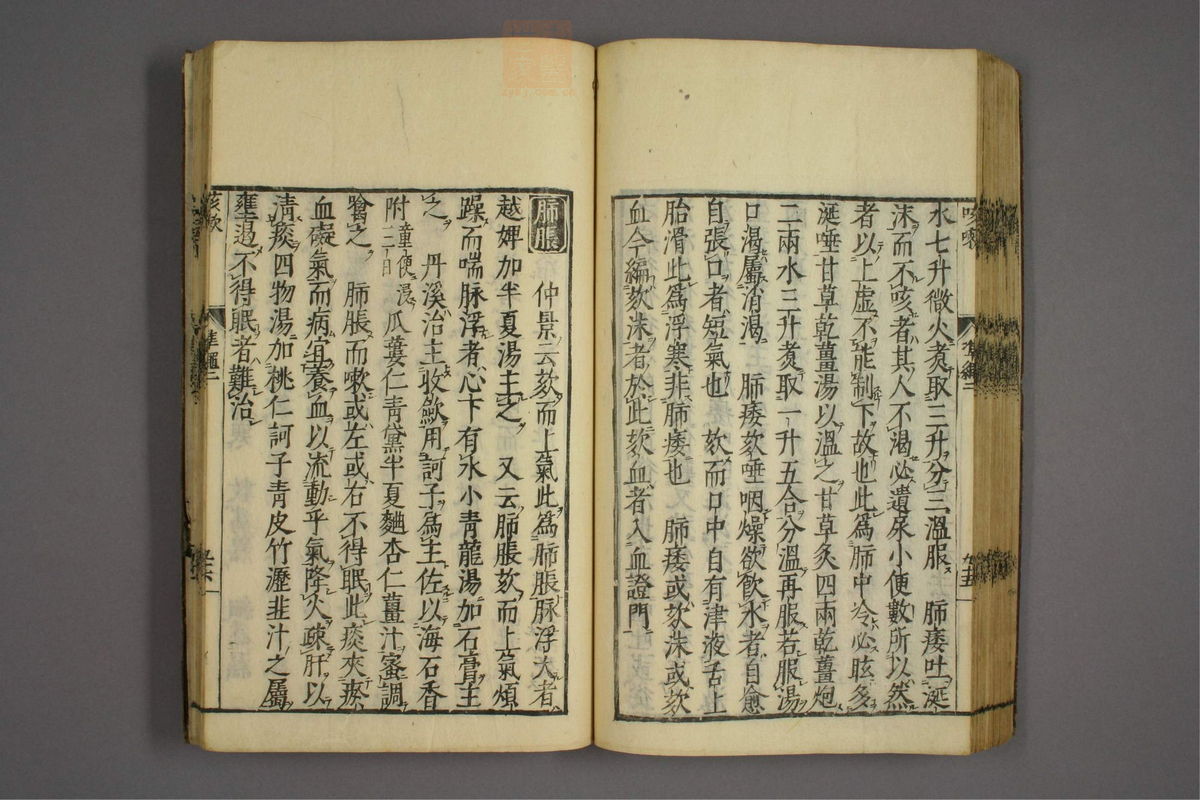 水七升微火煮取三升分三溫服　肺痿吐涎
沫而不咳者其人不渴必遺尿小便數所以然
者以上虛不能制下故也此爲肺中冷必眩多
涎唾甘草乾薑湯以溫之甘草炙四兩乾薑炮
二兩水三升煮取一升五合分溫再服若服湯
口渴屬消渴　肺痿欬唾咽燥欲飲水者自愈
自張口者短氣也　欬而口中自有津液舌上
胎滑此爲浮寒非肺痿也　肺痿或欬沫或欬
血今編欬沫者於此欬血者入血證門
肺脹　仲景云欬而上氣此爲肺脹脉浮大者
越婢加半夏湯主之　又云肺脹欬而上氣煩
躁而喘脉浮者心下有水小青龍湯加石膏主
之　丹溪治主收斂用訶子爲主佐以海石香
附童便浸三日瓜蔞仁青黛半夏麯杏仁薑汁蜜調
噙之　肺脹而嗽或左或右不得眠此痰夾瘀
血礙氣而病宜養血以流動乎氣降火疎肝以
清痰四物湯加桃仁訶子青皮竹瀝韭汁之屬
壅遏不得眠者難治
咳嗽
準繩二